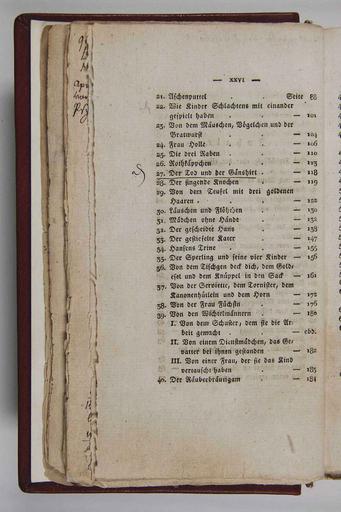 — XXVI —
21. Aschenputtel . . Seite 88
22. Wie Kinder Schlachtens mit einander
gespielt haben . . — 101
23. Von dem Mäuschen, Vögelchen und der
Bratwurst . . — 104
24. Frau Holle . . — 106
25. Die drei Raben . . — 110
26. Rothkäppchen . . — 113
27. Der Tod und der Gänshirt . — 118
28. Der singende Knochen . — 119
29. Von dem Teufel mit drei goldenen
Haaren . . . — 122
30. Läuschen und Flöhchen . — 130
31. Mädchen ohne Hände . — 132
32. Der gescheidte Hans . — 138
33. Der gestiefelte Kater . — 147
34. Hansens Trine . . — 155
35. Der Sperling und seine vier Kinder — 156
36. Von dem Tischgen deck dich, dem Gold-
esel und dem Knüppel in den Sack — 161
37. Von der Serviette, dem Tornister, dem
Kanonenhütlein und dem Horn — 172
38. Von der Frau Füchsin . — 176
39. Von den Wichtelmännern . — 180
I. Von dem Schuster, dem sie die Ar-
beit gemacht . . — ebd.
II. Von einem Dienstmädchen, das Ge-
vatter bei ihnen gestanden — 182
III. Von einer Frau, der sie das Kind
vertauscht haben . — 183
40. Der Räuberbräutigam . — 184